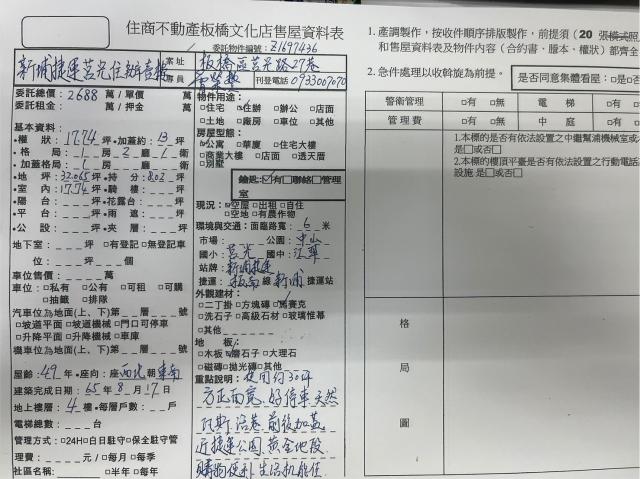 住商不動產板橋文化店售屋資料表
委託物件編號：Z1697436
新埔捷運莒光住辦壹樓
案址 板橋區莒光路27巷
專員
刊登電話 0933007070
委託總價：2688 萬/單價 萬
委託租金： 萬/押金 萬
基本資料：
•權 狀：17.74坪•加蓋約：13坪
•格 局：1房2廳1衛
•加蓋格局：1房 廳 衛
•地 坪：32.065坪•持 分：8.02坪
•室 內：17.74坪•騎 樓： 坪
•陽 台： 坪•花露台： 坪
•平 台： 坪•雨 遮： 坪
•公 設： 坪•夾 層： 坪
地下室： 坪 □有登記 □無登記車
位： 坪， 個
車位售價： 萬
車位：□私有 □公有 □可租 □可購
□抽籤 □排隊
汽車位為地面(上、下)第 層 號
□坡道平面 □坡道機械 □門口可停車
□升降平面 □升降機械 □車庫
機車位為地面(上、下)第 層 號
屋齡：49年•座向：座西北朝東南
建築完成日期：65年8月17日
地上樓層：4樓•每層戶數： 戶
電梯總數： 台
管理方式：□24H□白日駐守□保全駐守管
理費： 元/□每月□每季
社區名稱： □半年□每年
物件用途：
□住宅 □住辦 □辦公 □店面
□土地 □廠房 □車位 □其他
房屋型態：
□公寓 □華廈 □住宅大樓
□商業大樓 □店面 □透天厝
□別墅
鑰匙：□有□聯絡□管理
室
現況：□空屋 □出租 □自住
□空地 □有農作物
環境與交通：面臨路寬：6米
市場： 公園：中山
國小：莒光 國中：江翠
站牌：新埔捷運
捷運：板南線新埔捷運站
外觀建材：
□二丁掛 □方塊磚 □馬賽克
□洗石子 □高級石材 □玻璃惟幕
□其他
地 板：
□木板 □磨石子 □大理石
□磁磚 □拋光磚 □其他
重點說明：使用約30坪
方正面寬，好停車，天然
瓦斯，沿巷，前後加蓋，
近捷運公園，黃金地段，
購物便利，生活機能佳
1. 產調製作，按收件順序排版製作，前提須(20 張
和售屋資料表及物件內容(合約書、謄本、權狀)都齊全
2. 急件處理以收斡旋為前提。
是否同意集體看屋：□是□否
警衛管理 □有 □無 電 梯 □有 □無
管 理 費 □有 □無 中 庭 □有 □無
1.本標的是否有依法設置之中繼幫浦機械室或
是□或否□
2.本標的樓頂平臺是否有依法設置之行動電話
設施 是□或否□
格
局
圖